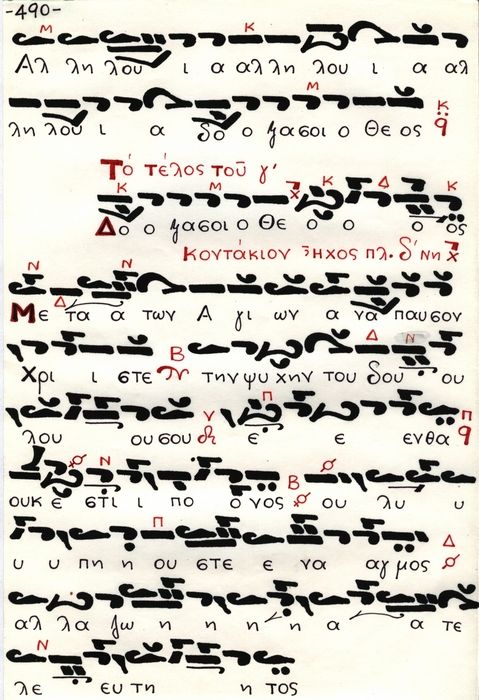 -490-
Αλ λη λου ι α αλ λη λου ι α αλ
λη λου ι α δο ο ξασοι ο Θε ος
Τό τέλος τοῦ γ'
Δο ο ξασοι ο Θε ο ο ο ος
Κοντάκιον Ἦχος πλ. δ' Νη
Με τα α των Α γι ων α να παυσον
Χρι ι στε την ψυ χην του δου ου
λου ου σου ε ε ενθα
ουκ ε στι ι πο ο νος ου λυ υ
υ υ πη η ου στε ε να αγ μος
αλ λα ζω η η η η α α τε
λε ευ τη η τος